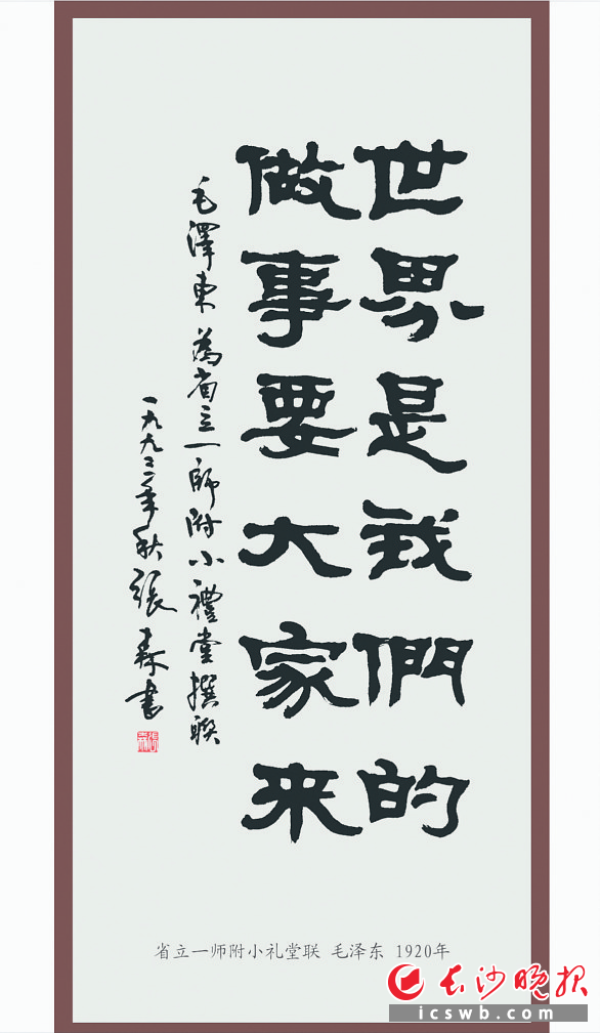 世界是我們的
做事要大家来
毛澤東為省立一師附小禮堂撰聯
一九九二年秋張森書
省立一师附小礼堂联 毛泽东 1920年
长沙晚报
icswb.com